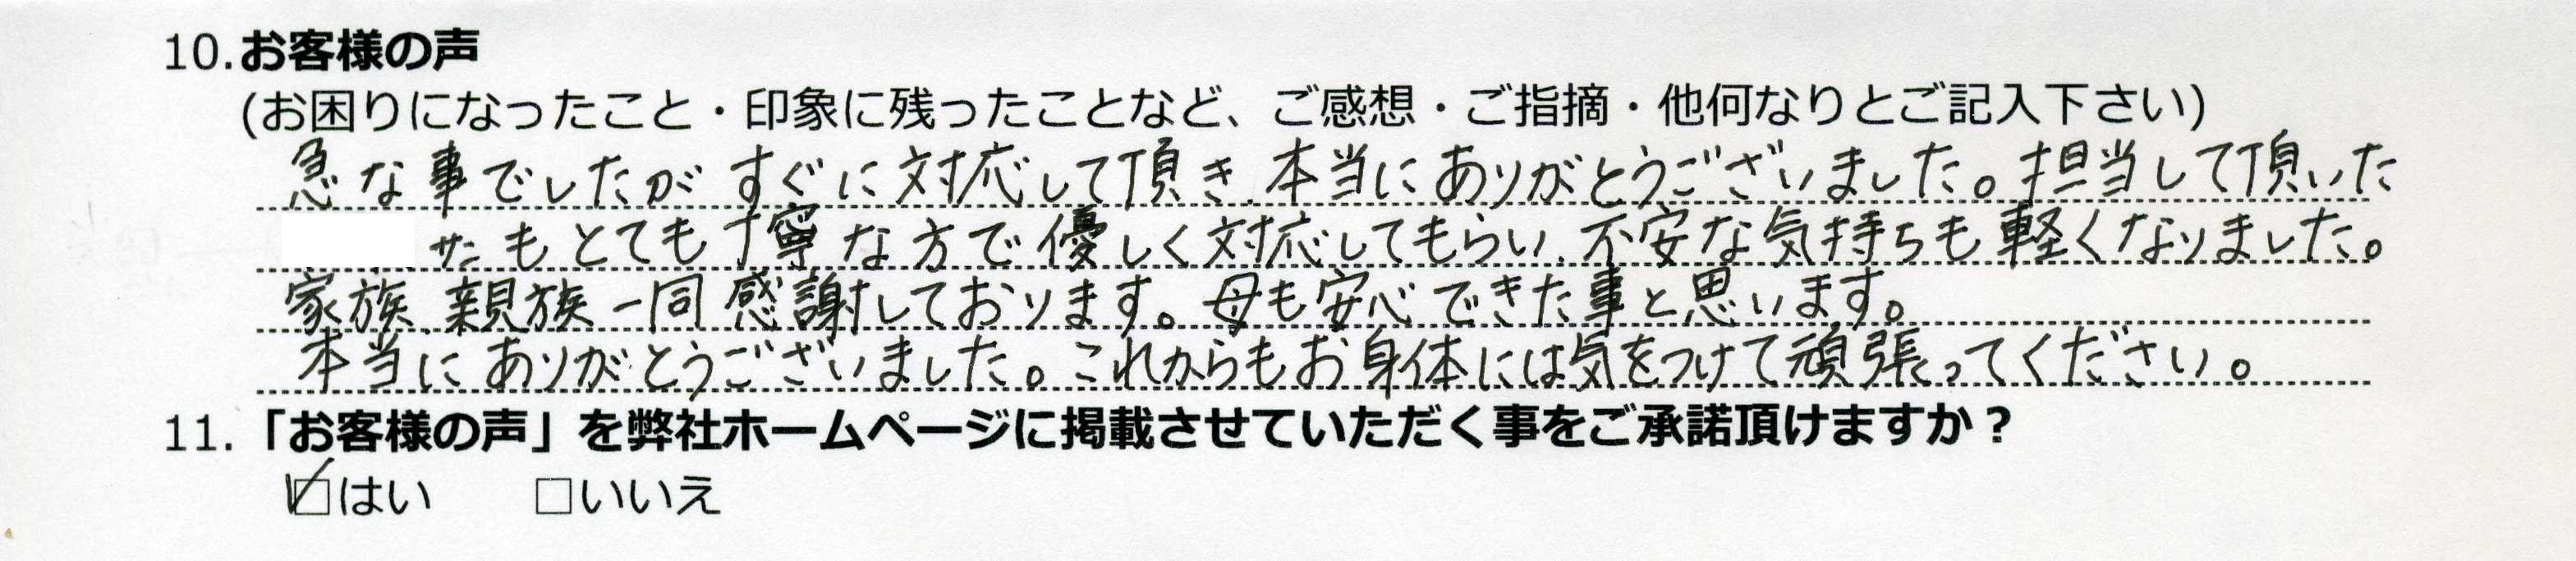 10.お客様の声
(お困りになったこと・印象に残ったことなど、ご感想・ご指摘・他何なりとご記入下さい)
急な事でしたがすぐに対応して頂き、本当にありがとうございました。担当して頂いた
もとても丁寧な方で優しく対応してもらい、不安な気持ちも軽くなりました。
家族、親族一同感謝しております。母も安心できた事と思います。
本当にありがとうございました。これからもお身体には気をつけて頑張ってください。
11.「お客様の声」を弊社ホームページに掲載させていただく事をご承諾頂けますか?
☑はい □いいえ